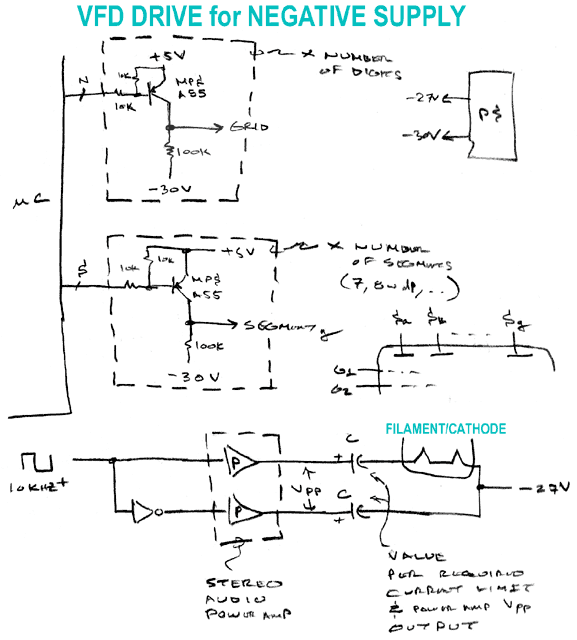 VFD DRIVE for NEGATIVE SUPPLY
+5V
X NUMBER
OF DIGITS
N
10K
MPS
A55
10K
GRID
100K
-30V
-27V
-30V
PS
µC
+5V
X NUMBER
OF SEGMENTS
(7, 8 w dp, ...)
S
10K
10K
MPS
A55
SEGMENT g
100K
-30V
Sa Sb Sg
G1
G2
FILAMENT/CATHODE
10KHZ+
P
P
VPP
C
+
C
+
-27V
STEREO
AUDIO
POWER AMP
VALUE
PER REQUIRED
CURRENT LIMIT
& POWER AMP VPP
OUTPUT